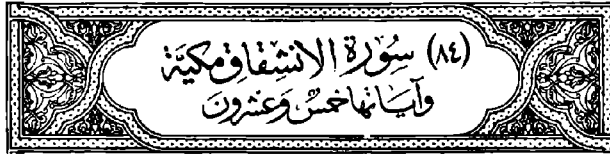 (٨٤) سُورَةُ الانشِقَاقِ مَكِيَّة
وَآيَاتُهَا خَمسٌ وَعِشرُونَ